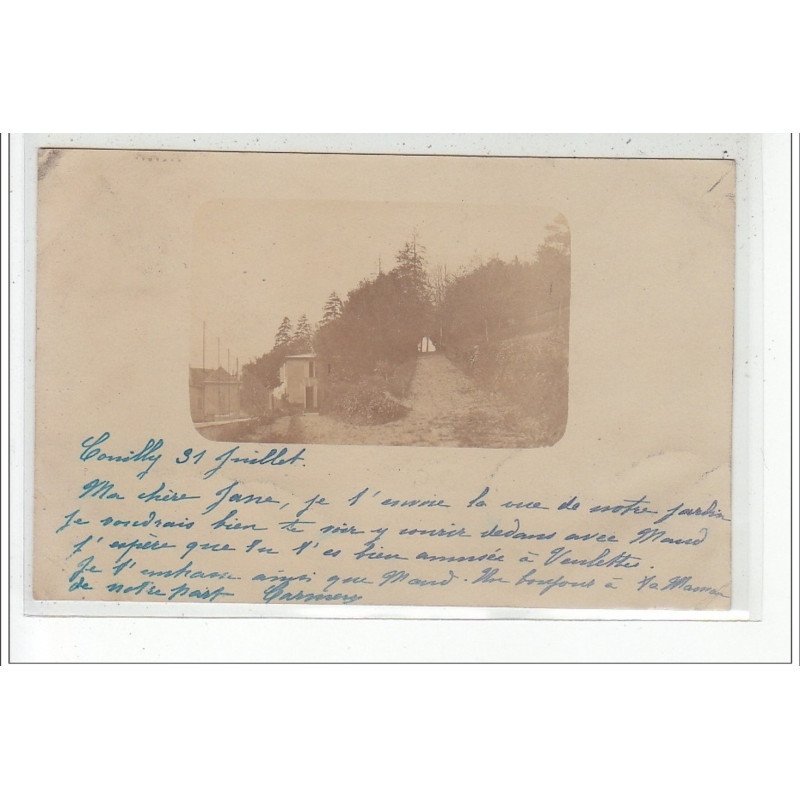 Couilly 31 Juillet.
Ma chère Jane, je t'envoie la vue de notre jardin
je voudrais bien te voir y courir dedans avec Maud
j'espère que tu t'es bien amusée à Veulettes.
Je t'embrasse ainsi que Maud. Un bonjour à ta Maman
de notre part Carmen